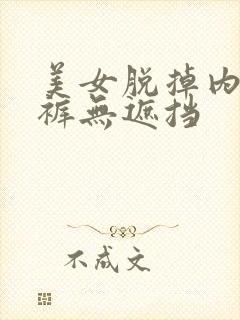 美女脱掉内
裤無遮挡
不成文